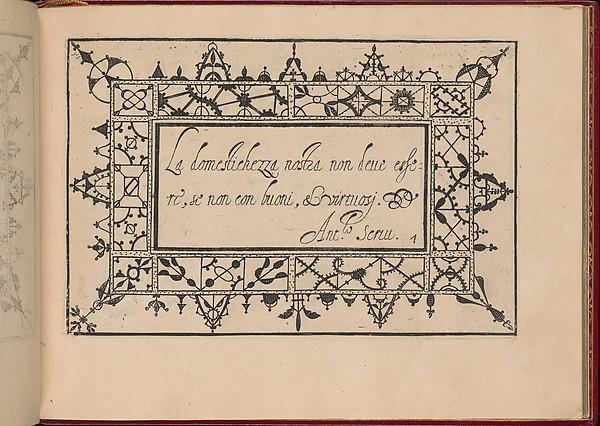 La domestichezza nostra non deue esse-
re, se non con buoni, & virtuosj.
Ant.º scriu. 1